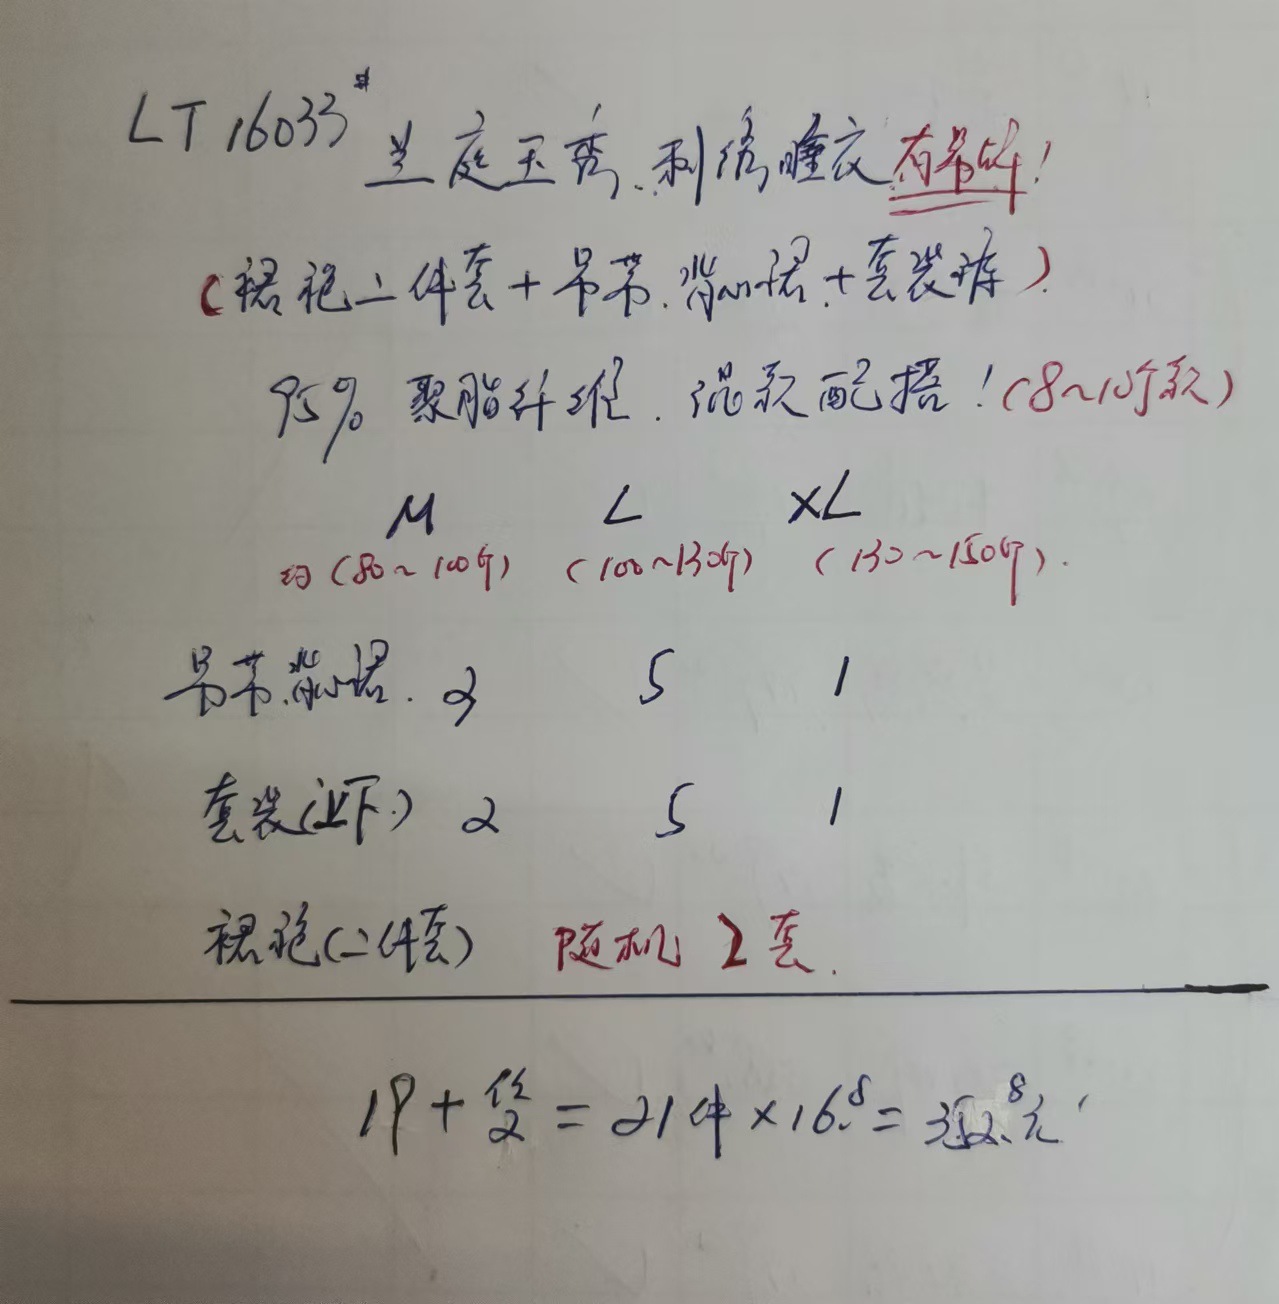 LT 16033# 兰庭玉秀.利落睡衣 有吊牌!
(裙袍二件套+吊带.背心裙.+套装裤).
95% 聚脂纤维.混款配搭!(8~10个款)
M L XL
约(80~100斤) (100~130斤) (130~150斤).
吊带.背心裙. 2 5 1
套装(上下.) 2 5 1
裙袍(二件套) 随机 2套.
19+2=21件×16.8=352.8元